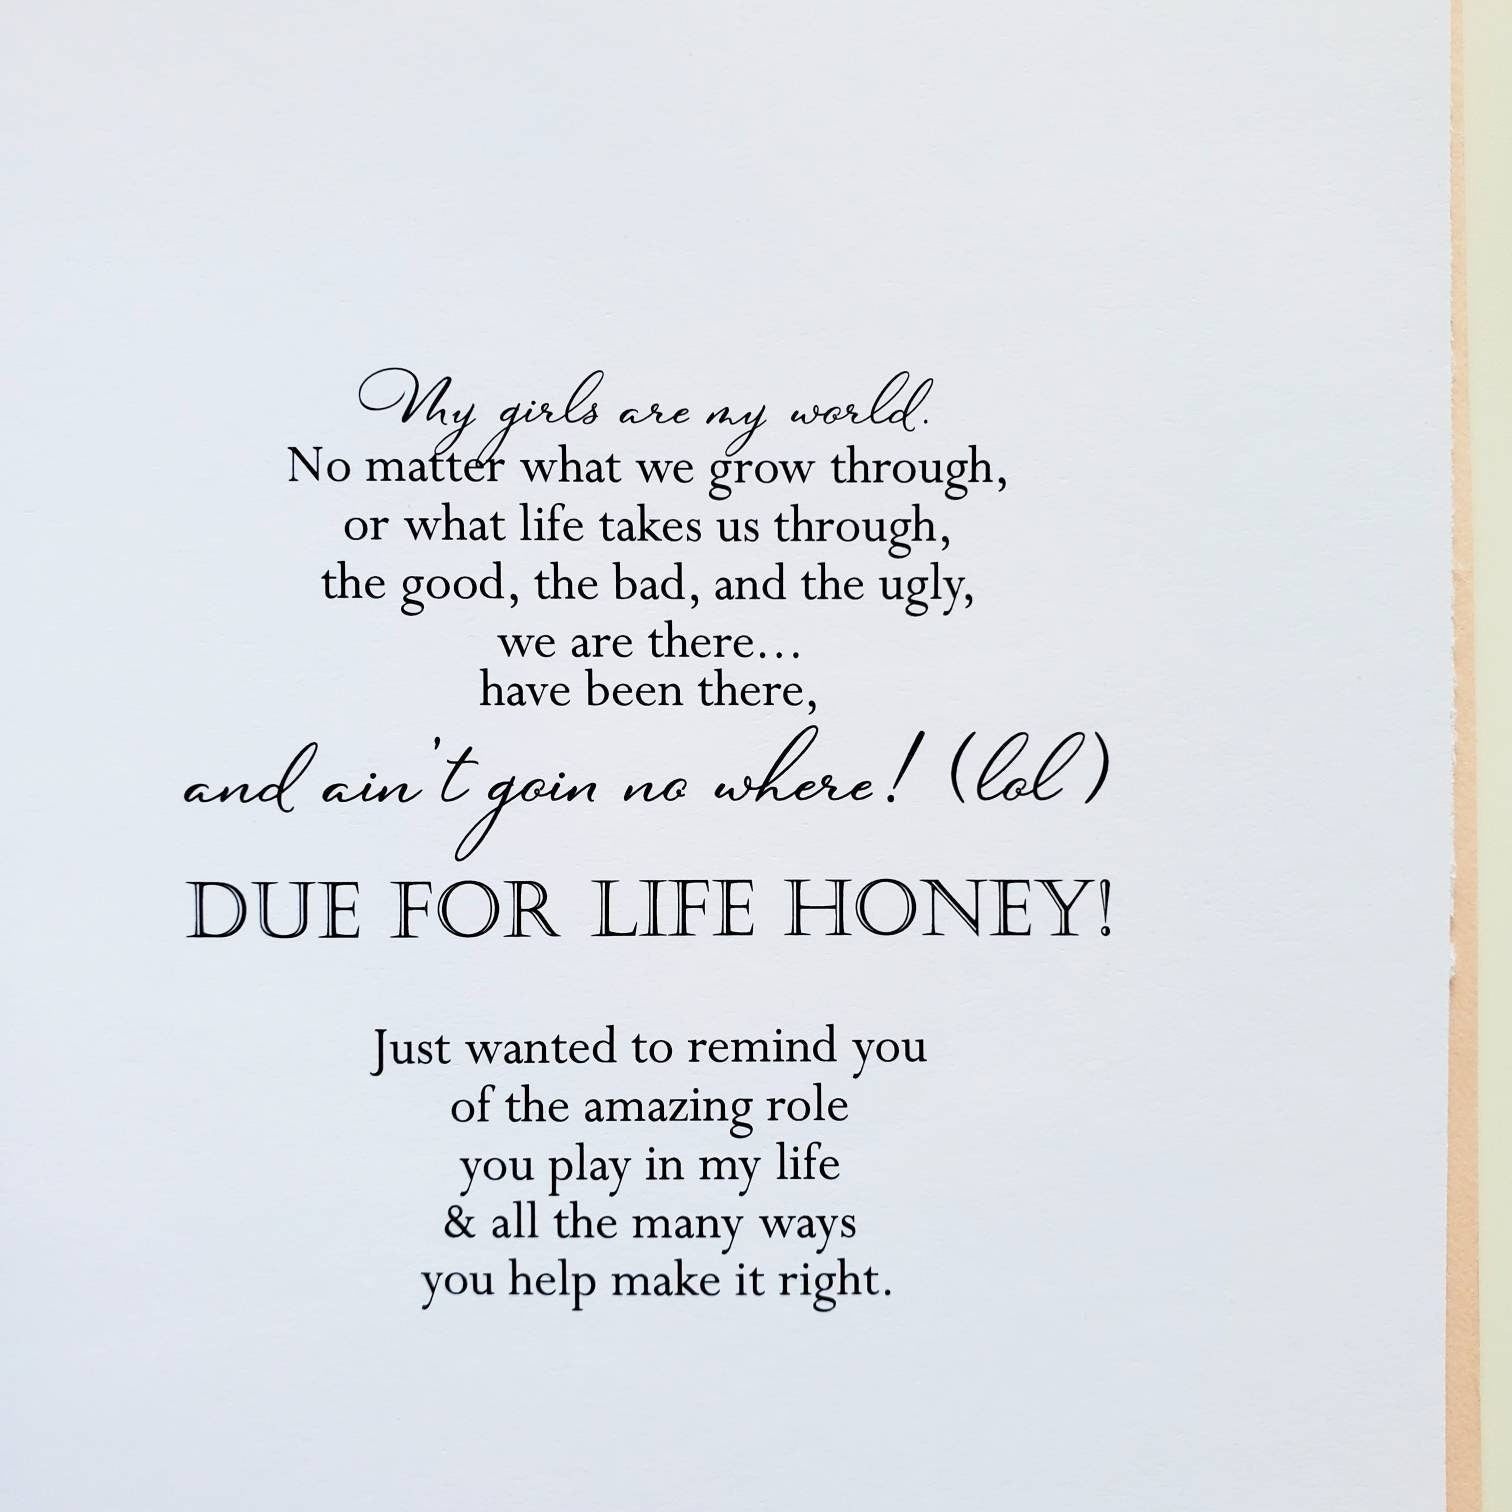 My girls are my world.
No matter what we grow through,
or what life takes us through,
the good, the bad, and the ugly,
we are there...
have been there,
and ain't goin no where! (lol)
DUE FOR LIFE HONEY!
Just wanted to remind you
of the amazing role
you play in my life
& all the many ways
you help make it right.